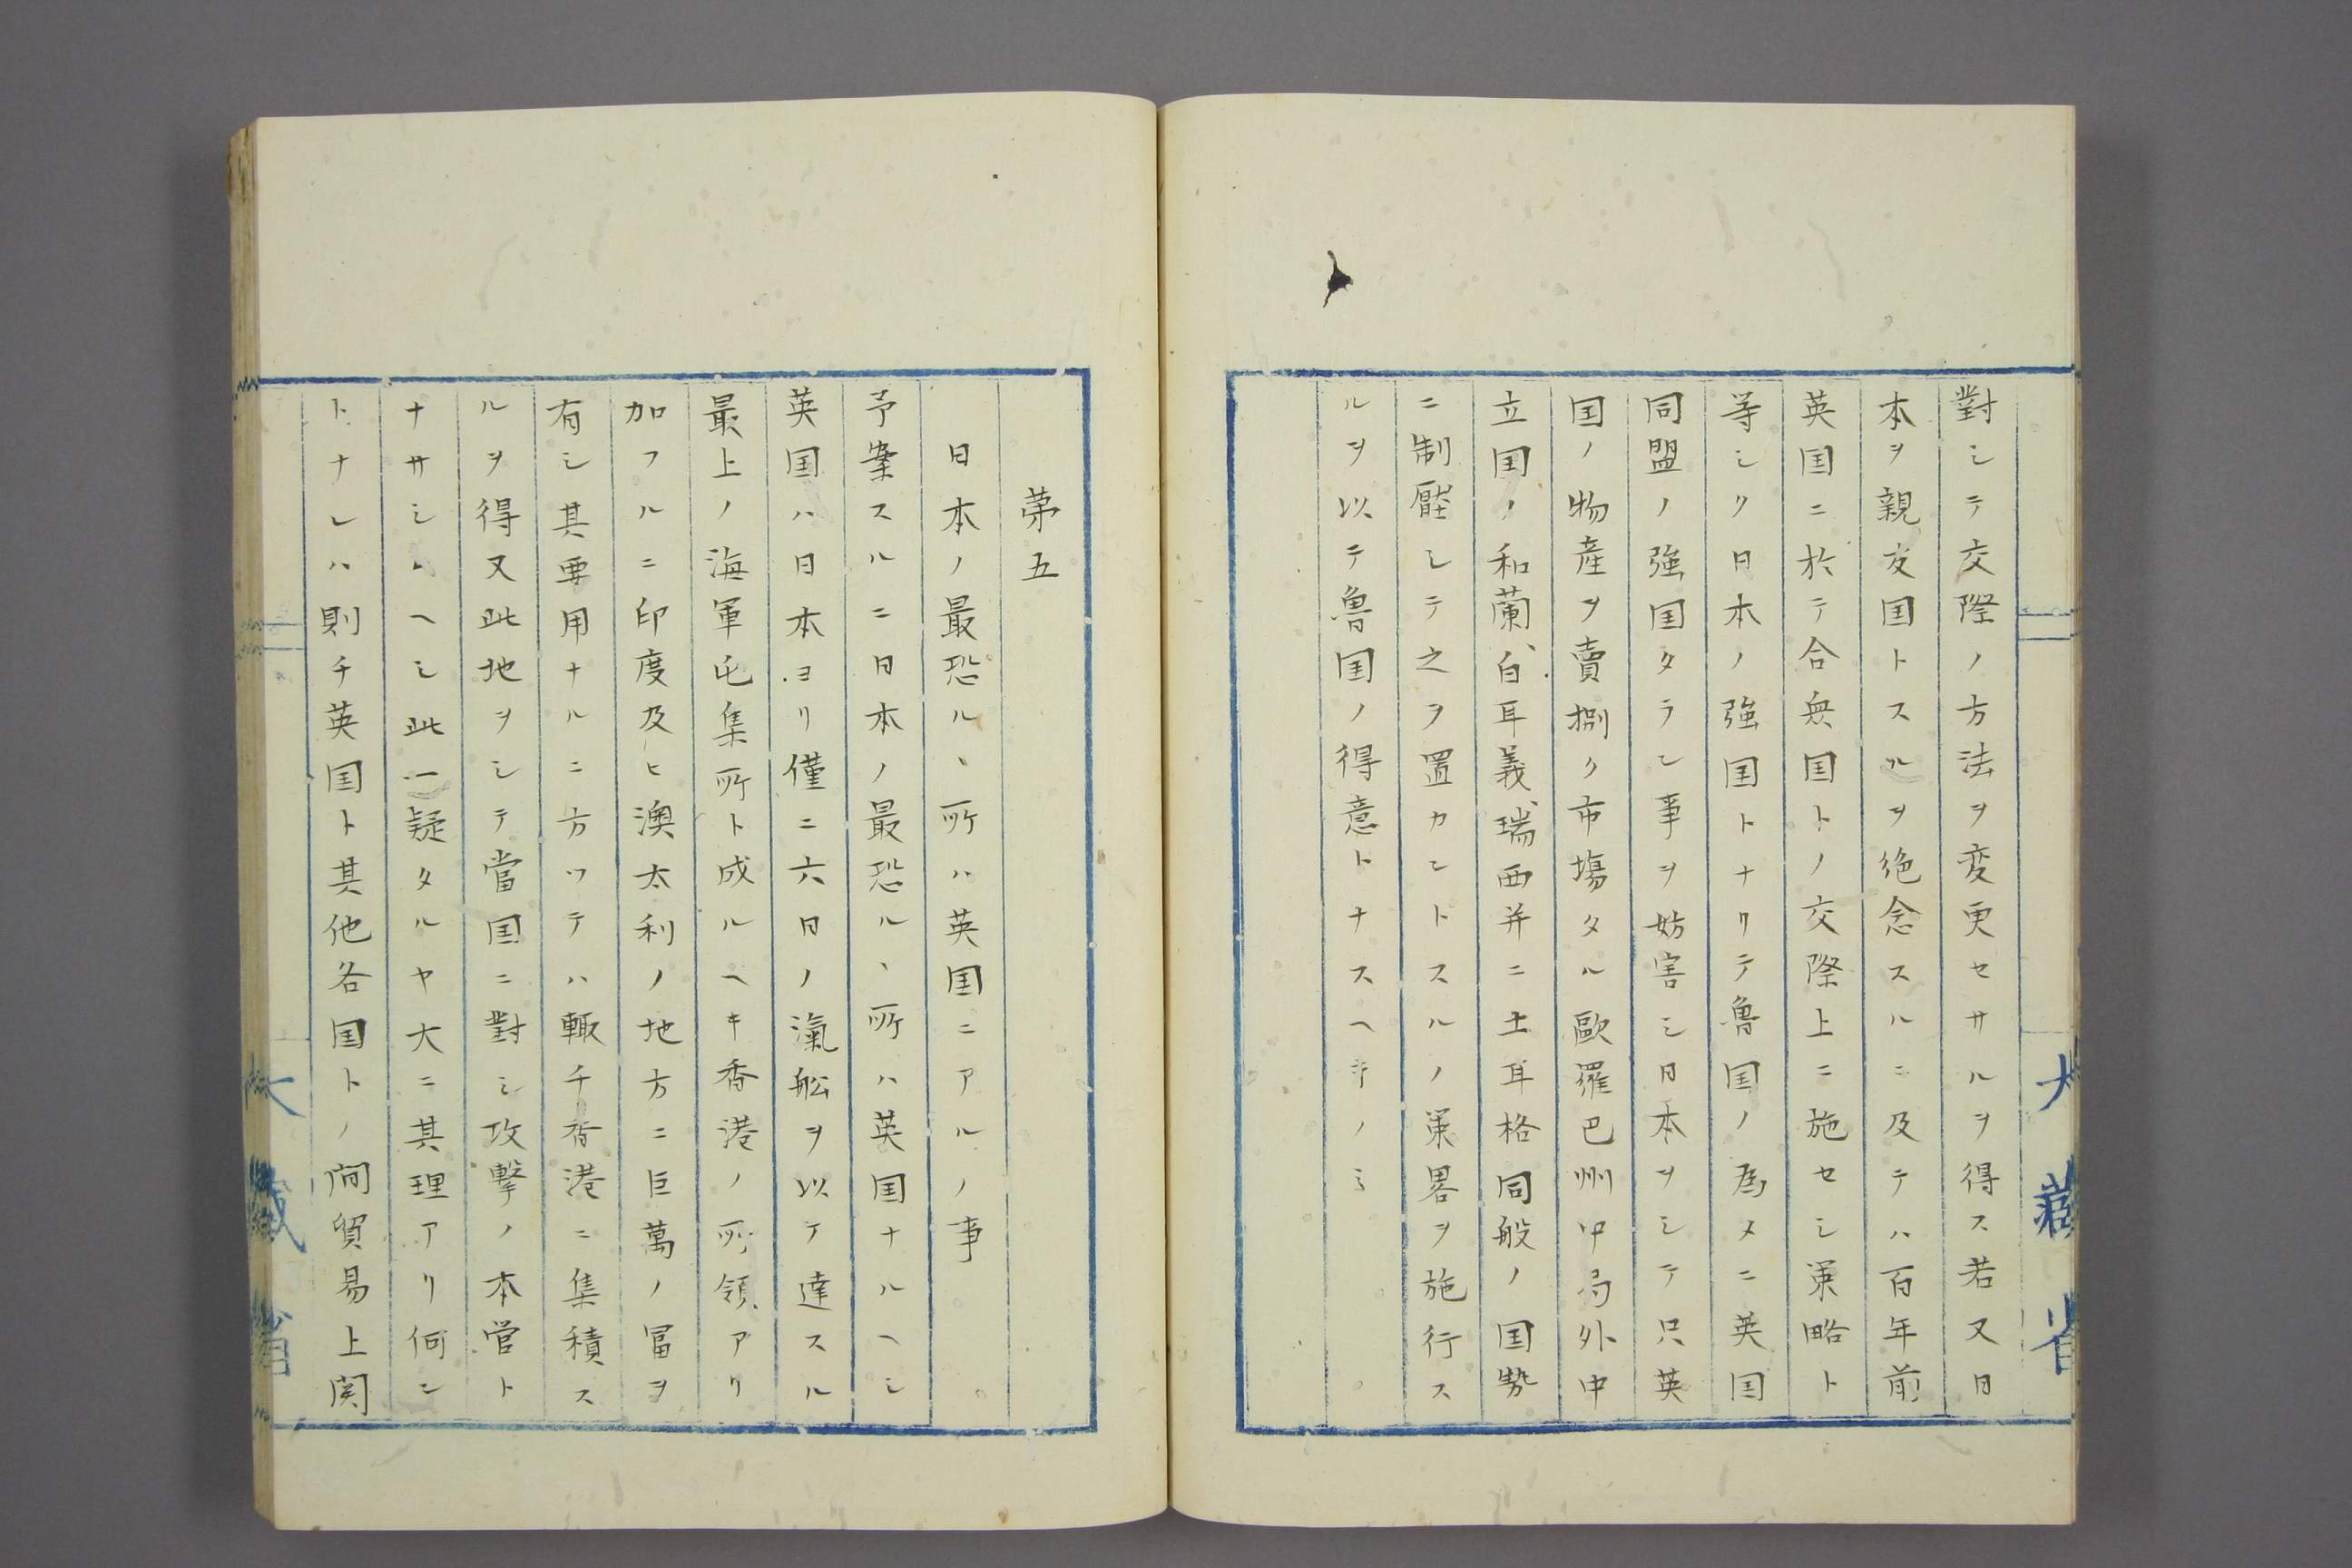 對シテ交際ノ方法ヲ変更セサルヲ得ス若又日
本ヲ親友国トスルヲ絶念スルニ及テハ百年前
英国ニ於テ合衆国トノ交際上ニ施セシ策略ト
等シク日本ノ強国トナリテ魯国ノ為メニ英国
同盟ノ強国タラン事ヲ妨害シ日本ヲシテ只英
国ノ物産ヲ賣捌ク市場タル歐羅巴州中局外中
立国ノ和蘭、白耳義、瑞西并ニ土耳格同般ノ国勢
ニ制壓シテ之ヲ置カントスルノ策畧ヲ施行ス
ルヲ以テ魯国ノ得意トナスヘキノミ
大藏省
第五
日本ノ最恐ル、所ハ英国ニアルノ事
予案スルニ日本ノ最恐ル、所ハ英国ナルヘシ
英国ハ日本ヨリ僅ニ六日ノ滊舩ヲ以テ達スル
最上ノ海軍屯集所ト成ルヘキ香港ノ所領アリ
加フルニ印度及ヒ澳太利ノ地方ニ巨萬ノ冨ヲ
有シ其要用ナルニ方ツテハ輙チ香港ニ集積ス
ルヲ得又此地ヲシテ當国ニ對シ攻撃ノ本営ト
ナサシムヘシ此一疑タルヤ大ニ其理アリ何ン
トナレハ則チ英国ト其他各国トノ間貿易上関
大藏省